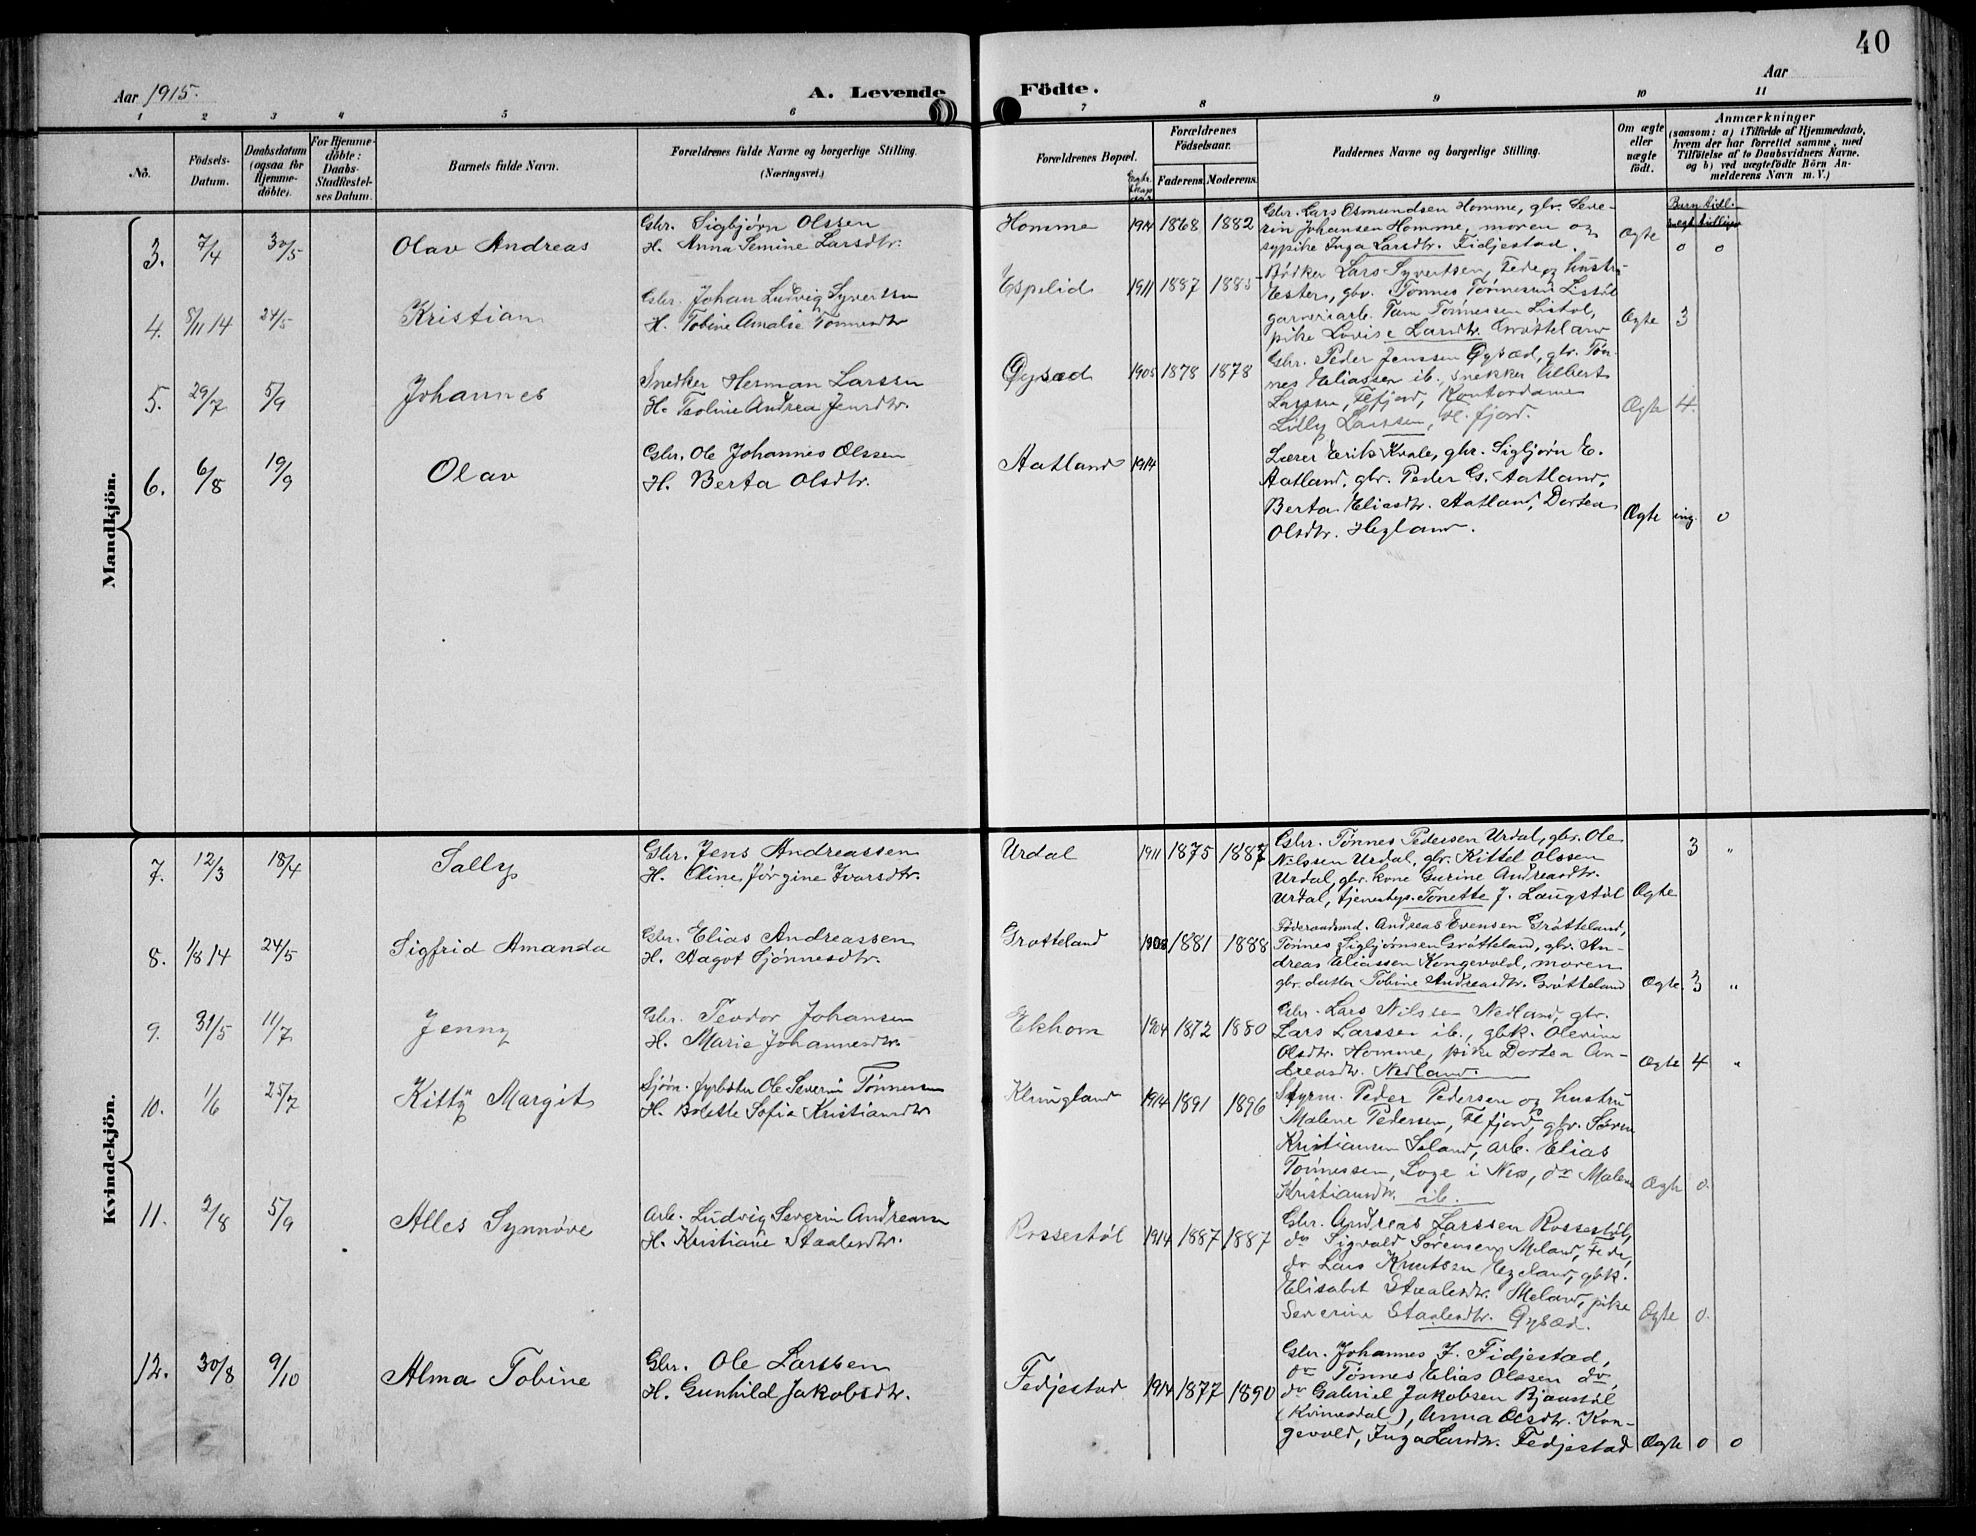 40
Aar 1915.
A. Levende Födte.
Aar
1 2 3 4 5 6 7 8 9 10 11
No.
Födsels-Datum.
Daabsdatum (ogsaa før Hjemme-döbte).
For Hjemme-döbte: Daabs-Stadfestel-ses Datum.
Barnets fulde Navn.
Forældrenes fulde Navne og borgerlige Stilling. (Næringsvei.)
Forældrenes Bopæl.
Forældrenes Födselsaar.
Faderens. Moderens.
Faddernes Navne og borgerlige Stilling.
Om ægte eller uægte födt.
Anmærkninger
(saasom: a) i Tilfælde af Hjemmedaab,
hvem der har forrettet samme, med
Tilföielse af to Daabsvidners Navne.
og b) ved uægtefödte Börn An-
melderens Navn m. V.)
Mandkjön.
3. 7/4 30/5 Olav Andreas
Gbr. Sigbjørn Olssen
H. Anna Semine Larsdtr.
Homme 1914 1868 1882
Gbr. Lars Osmundsen Homme, gbr. Seve-
rin Johansen Homme, moren og
sypike Inga Larsdtr. Fidjestad.
Ægte 0 0
4. 8/11 14 24/5 Kristian
Gbr. Johan Ludvig Syvertsen
H. Tobine Amalie Tønnesdtr
Espelid 1911 1887 1885
Bødker Lars Syvertsen, Fede og hustru
Ester, gbr. Tønnes Tønnesen Listøl
garveriarb. Tønnessen Listøl,
pike Lovise Larsdtr. Grøtteland
Ægte 3
5. 29/7 5/9 Johannes
Snedker Herman Larssen
H. Teoline Andrea Jensdtr.
Gysæd 1905 1878 1878
Gbr. Peder Jenssen Gysæd, gbr. Tøn-
nes Eliassen ib., snekker Albert
Larssen, Flfjord, Kontordame
Lilly Larssen, Fl.fjord.
Ægte 4.
6. 6/8 19/9 Olav
Gbr. Ole Johannes Olssen
H. Berta Olsdtr.
Aatland 1914
Lærer Erik Kvale, gbr. Sigbjørn E.
Aatland, gbr. Peder G. Aatland,
Berta Eliasdtr. Aatland, Dortea
Olsdtr. Hegland.
Ægte ing. 0
Kvindekjön.
7. 12/3 18/4 Sally
Gbr. Jens Andreassen
H. Eline Jørgine Ivarsdtr.
Urdal 1911 1875 1887
Gbr. Tønnes Pedersen Urdal, gbr. Ole
Nilssen Urdal, gbr. Kittel Olssen
Urdal, gbr. kone Gurine Andreasdtr.
Urdal, tjenestep. Tonette J. Laugstøl
Ægte 3 "
8. 1/8 14 24/5 Sigfrid Amanda
Gbr. Elias Andreassen
H. Aagot Tjønnesdtr.
Grøtteland 1908 1881 1888
Føderaadsmd. Andreas Evensen Grøtteland,
Tønnes Sigbjørnsen Grøtteland, gbr. An-
dreas Eliassen Kongevold, moren
gbr. datter Tobine Andreasdtr. Grøtteland
Ægte 3 "
9. 31/5 11/7 Jenny
Gbr. Teodor Johansen
H. Marie Johannesdtr.
Ekhom 1904 1872 1880
Gbr. Lars Nilssen Nedland, gbr.
Lars Larssen ib., gbk. Olevine
Olsdtr. Homme, pike Dortea An-
dreasdtr. Nedland.
Ægte 4 "
10. 1/6 25/7 Kitty Margit
Sjøm. fyrbøter Ole Severin Tønnessen
H. Bolette Sofie Kristiansdtr
Klungland 1914 1891 1896
Styrm. Peder Pedersen og hustru
Malene Pedersen, Flfjord, gbr. Søren
Kristiansen Seland, arb. Elias
Tønnessen, Loge i Nes, do Malene
Kristiansdtr. ib.
Ægte 0.
11. 2/8 5/9 Alles Synnøve
Arb. Ludvig Severin Andreassen
H. Kristiane Staalesdtr.
Rossestøl 1914 1887 1887
Gbr. Andreas Larssen Rossestøl,
do Sigvald Sørensen Meland, Fede,
do Lars Knutsen Egeland, gbk.
Elisabet Staalesdtr. Meland, pike
Severine Staalesdtr. Gysæd.
Ægte 0.
12. 30/8 9/10 Alma Tobine
Gbr. Ole Larssen
H. Gunhild Jakobsdtr.
Fedjestad 1914 1877 1890
Gbr. Johannes J. Fidjestad,
do Tønnes Elias Olssen do,
do Gabriel Jakobsen Bjaustøl
(Kvinesdal), Anna Olsdtr. Kon-
gevold, Inga Larsdtr. Fedjestad
Ægte 0 0